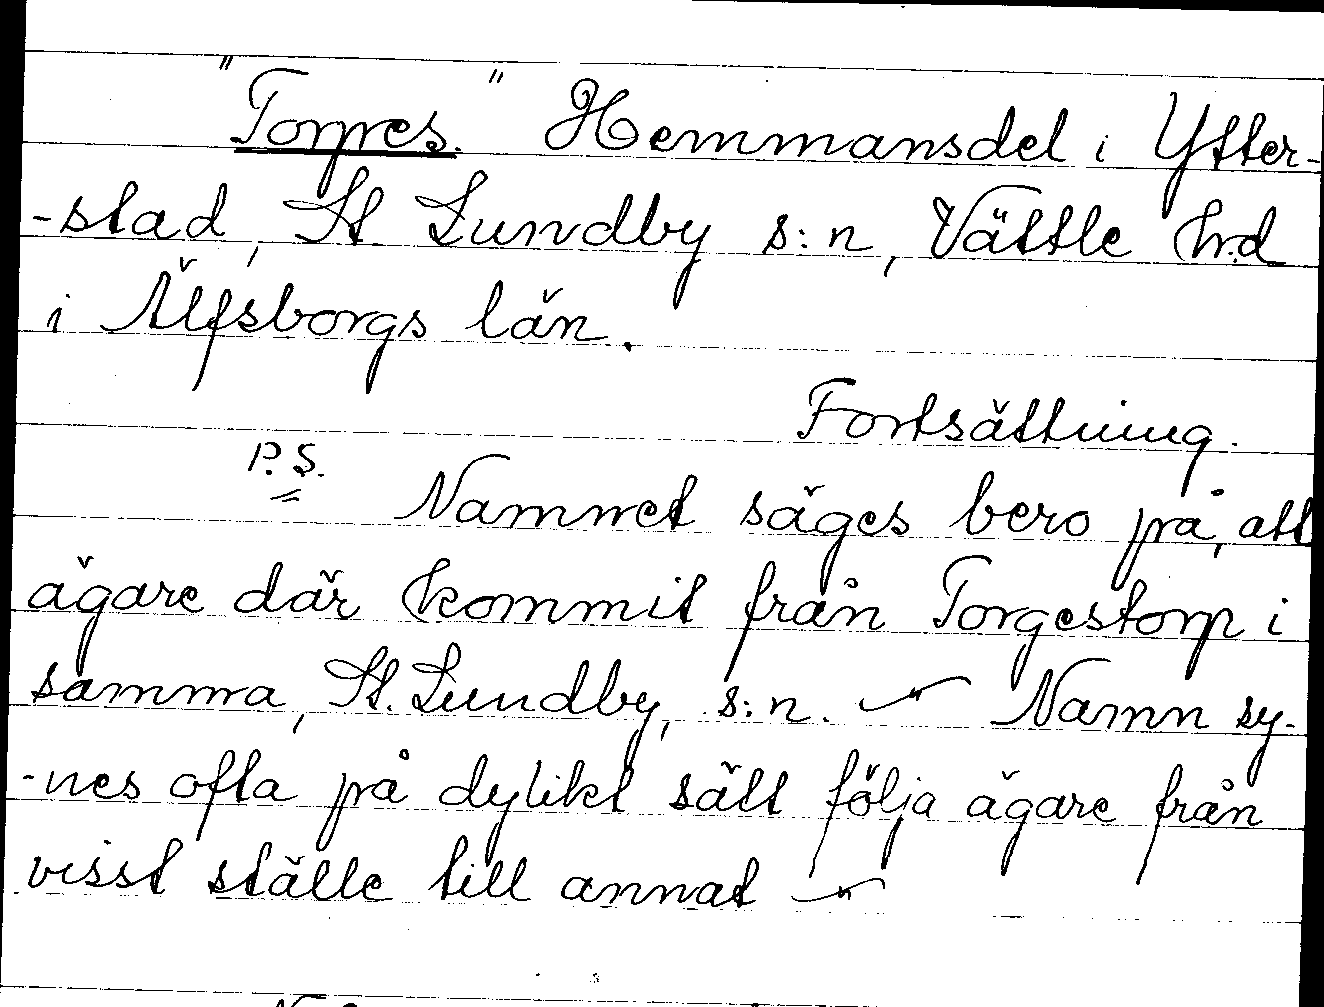 "Torpes." Hemmansdel i Yfter-
-stad, St Lundby s:n, Vättle hrd
i Älfsborgs län.
Fortsättning.
P.S. Namnet säges bero på, att
ägare där kommit från Torgestorp i
samma, St. Lundby, s:n. – Namn sy-
-nes ofta på dylikt sätt följa ägare från
visst ställe till annat –